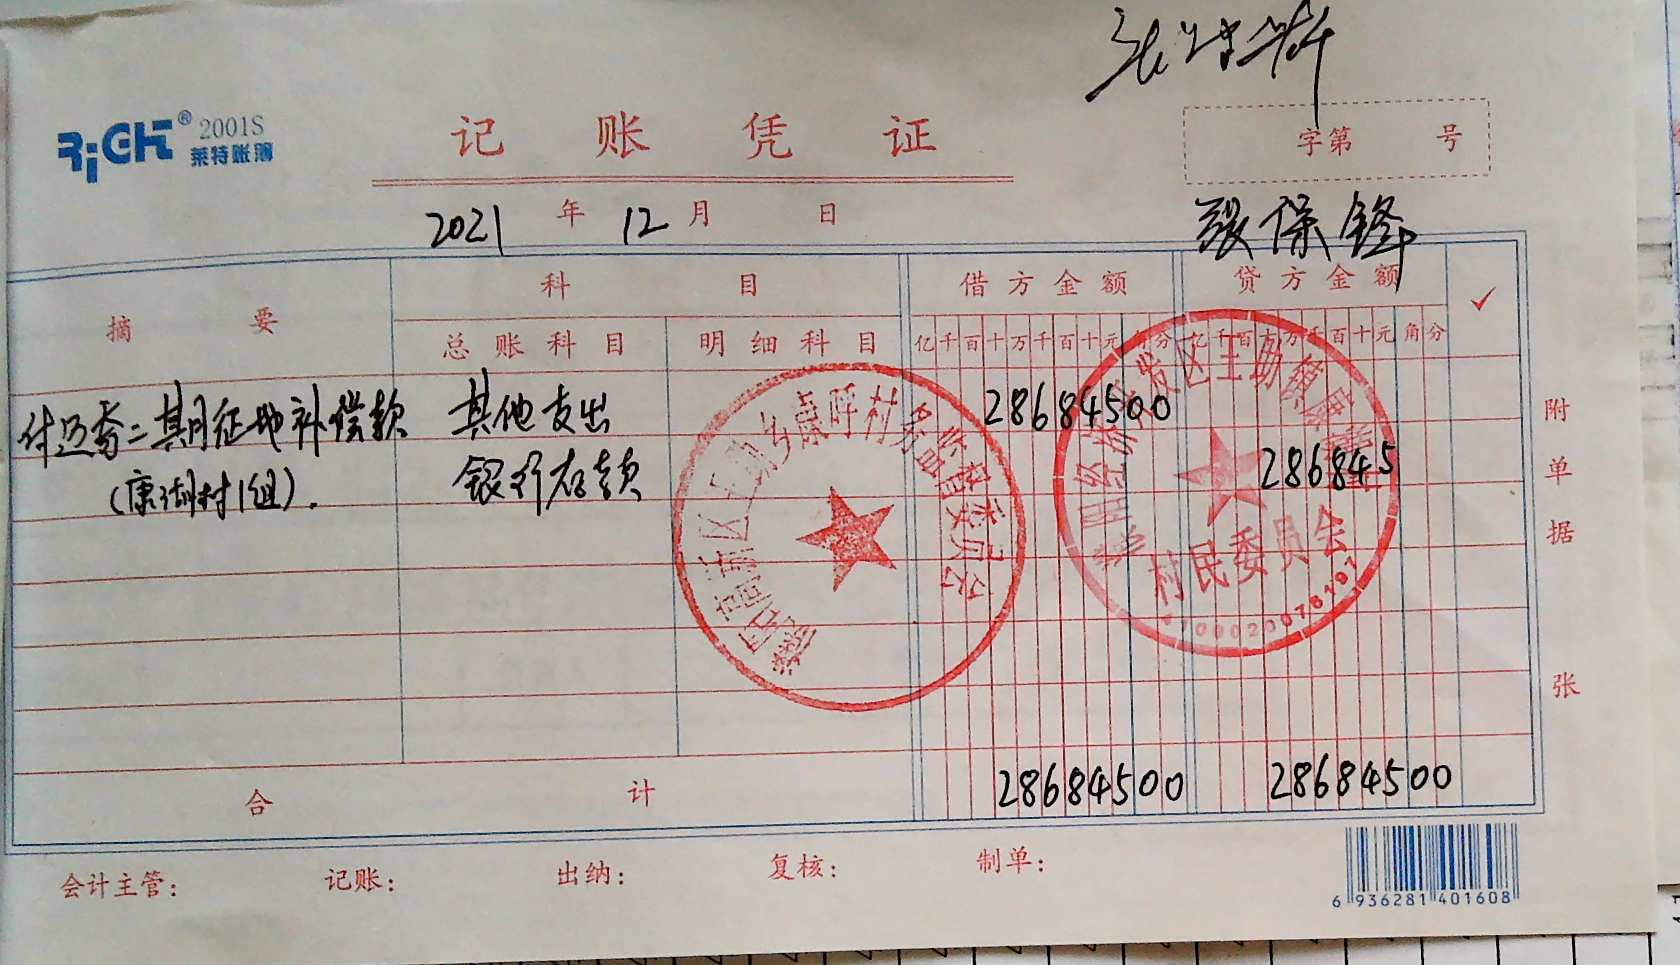 RiGHT® 2001S
莱特账簿
记账凭证
字第 号
2021年12月 日
张保锋
摘要 科目 借方金额 贷方金额 ✓
总账科目 明细科目 亿千百十万千百十元角分 亿千百十万千百十元角分
付迈奇二期征地补偿款 其他支出 28684500
(康湖村1组). 银行存款 286845
合计 28684500 28684500
附单据 张
村民委员会
会计主管: 记账: 出纳: 复核: 制单:
6 936281 401608